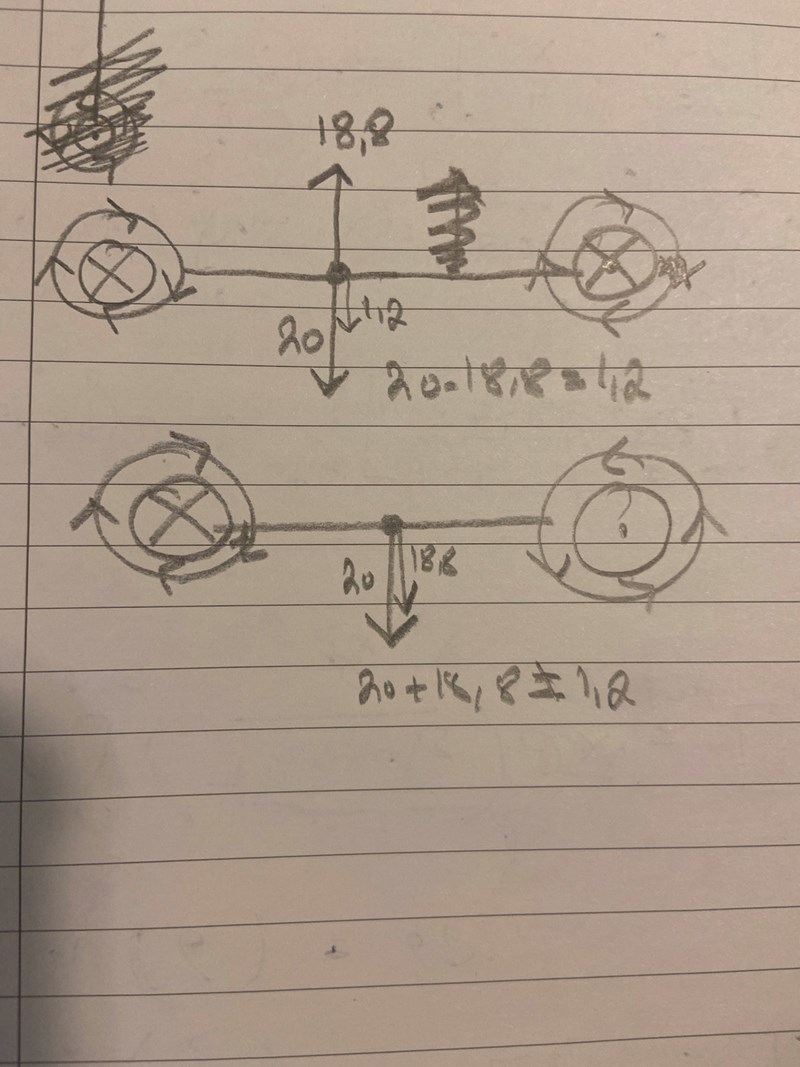 18,8
1,2
20
20-18,8=1,2
20
18,8
20+18,8=1,2